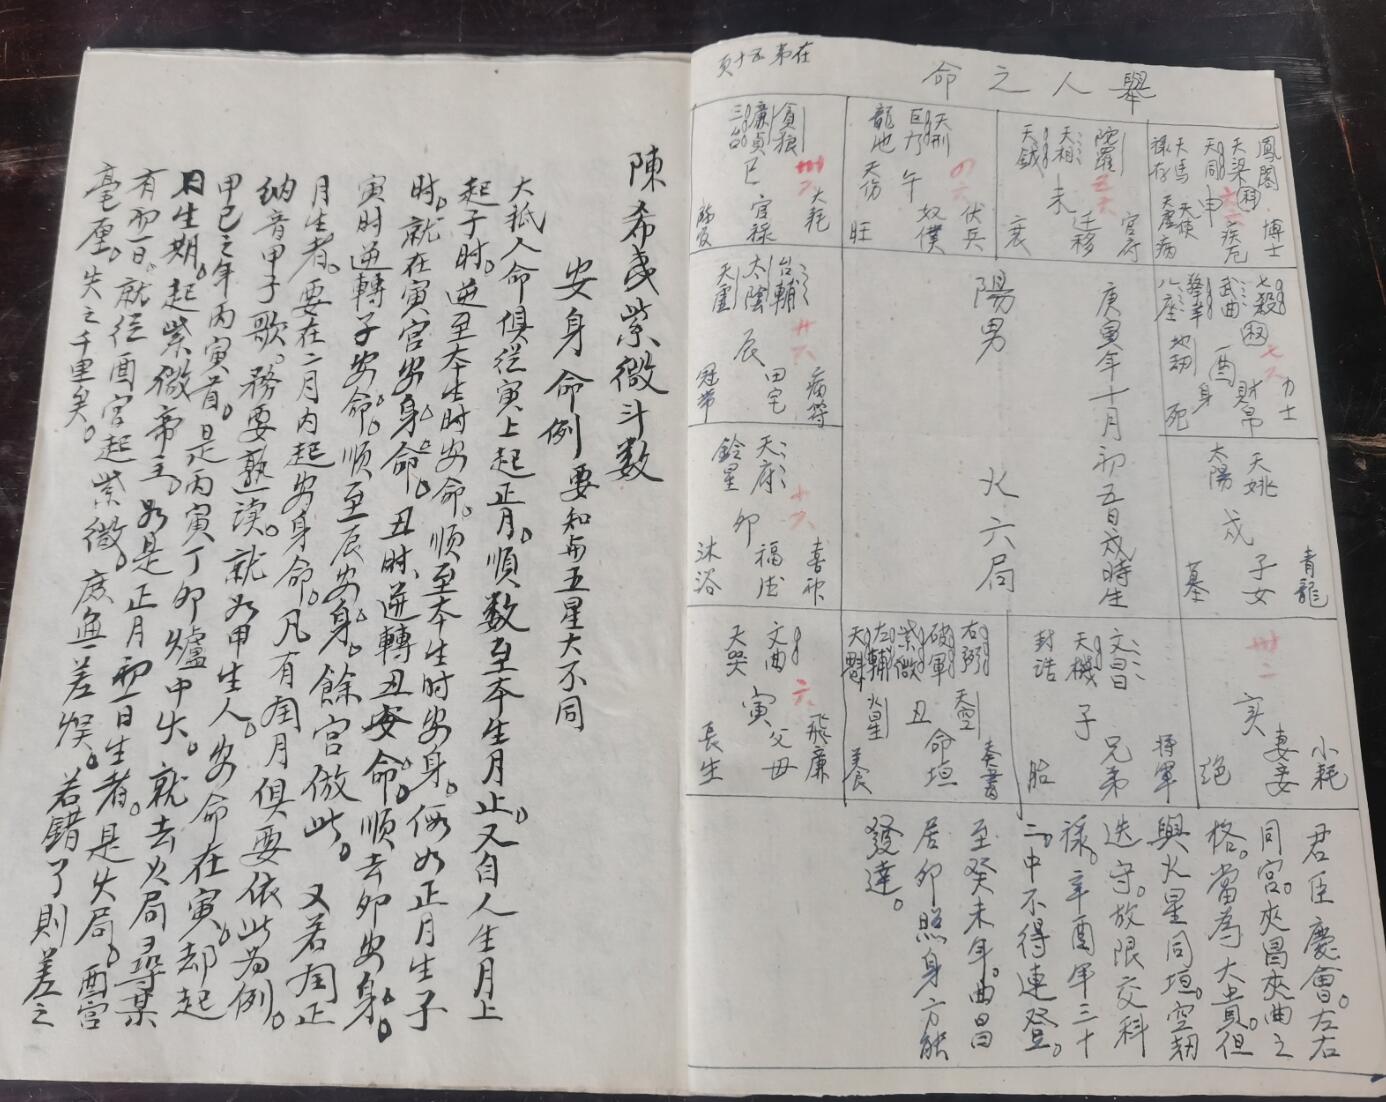 舉人之命
在弟五十頁
鳳閣
天梁科
天同
天馬
祿存
六六
申
疾厄
博士
天使
天虛
病
陀羅
天相
天鉞
五六
未
遷移
官府
衰
天刑
巨门
龍池
四六
天傷
午
奴僕
伏兵
旺
貪狼
廉貞
三台
卅六
巳
官祿
大耗
台輔
太陰
廿六
辰
田宅
病符
冠帶
天府
鈴星
十六
卯
福德
喜神
沐浴
文曲
天哭
六
寅
父母
飛廉
長生
右弼
破軍
紫微
左輔
天魁
天空
火星
丑
命垣
奏書
養
文昌
天機
封诰
子
兄弟
將軍
胎
卅二
亥
妻妾
小耗
绝
天姚
太陽
戌
子女
青龍
墓
七殺
武曲
八座
地劫
七六
酉
身
財帛
力士
死
庚寅年十月初五日戌時生
陽男
火六局
君臣慶會。左右
同宫。夾昌夾曲之
格。當為大貴。但
與火星同垣。空劫
迭守。故限交科
禄。辛酉年三十
二。中不得連登。
至癸未年。曲昌
居卯照身方能
發達。
陳希夷紫微斗数
安身命例 要知與五星大不同
大秖人命俱從寅上起正月。順数至本生月止。又自人生月上
起子时。逆至本生时安命。順至本生时安身。假如正月生子
时。就在寅宫安身命。丑时。逆轉丑安命。順去卯安身。
寅时逆轉子安命。順至辰安身。餘宫倣此。又若閏正
月生者。要在二月内起安身命。凡有閏月俱要依此为例。
纳音甲子歌。務要熟读。就如甲生人。安命在寅。却起
甲已之年丙寅首。是丙寅丁卯爐中火。就去火局尋某
日生期。起紫微帝主。如是正月初一日生者。是火局。酉宫
有初一日。就從酉宫起紫微。庶無差悮。若錯了則差之
毫厘。失之千里矣。